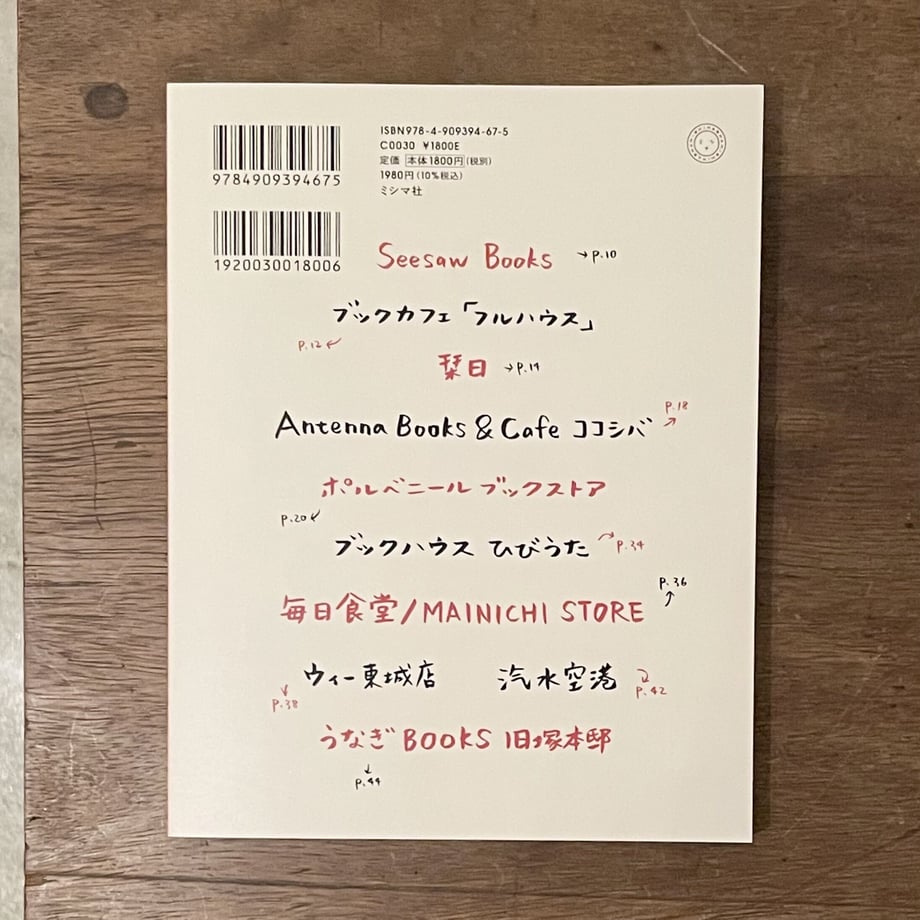 ISBN978-4-909394-67-5
C0030 ¥1800E
定価 本体1800円(税別)
1980円(10%税込)
ミシマ社
9784909394675
1920030018006
Seesaw Books →p.10
ブックカフェ「フルハウス」
p.12
栞日 →p.14
p.18
Antenna Books & Cafe ココシバ
ポルベニール ブックストア
p.20
ブックハウス ひびうた p.34
p.36
毎日食堂/MAINICHI STORE
ウィー東城店 汽水空港
p.38 p.42
うなぎBOOKS 旧塚本邸
p.44